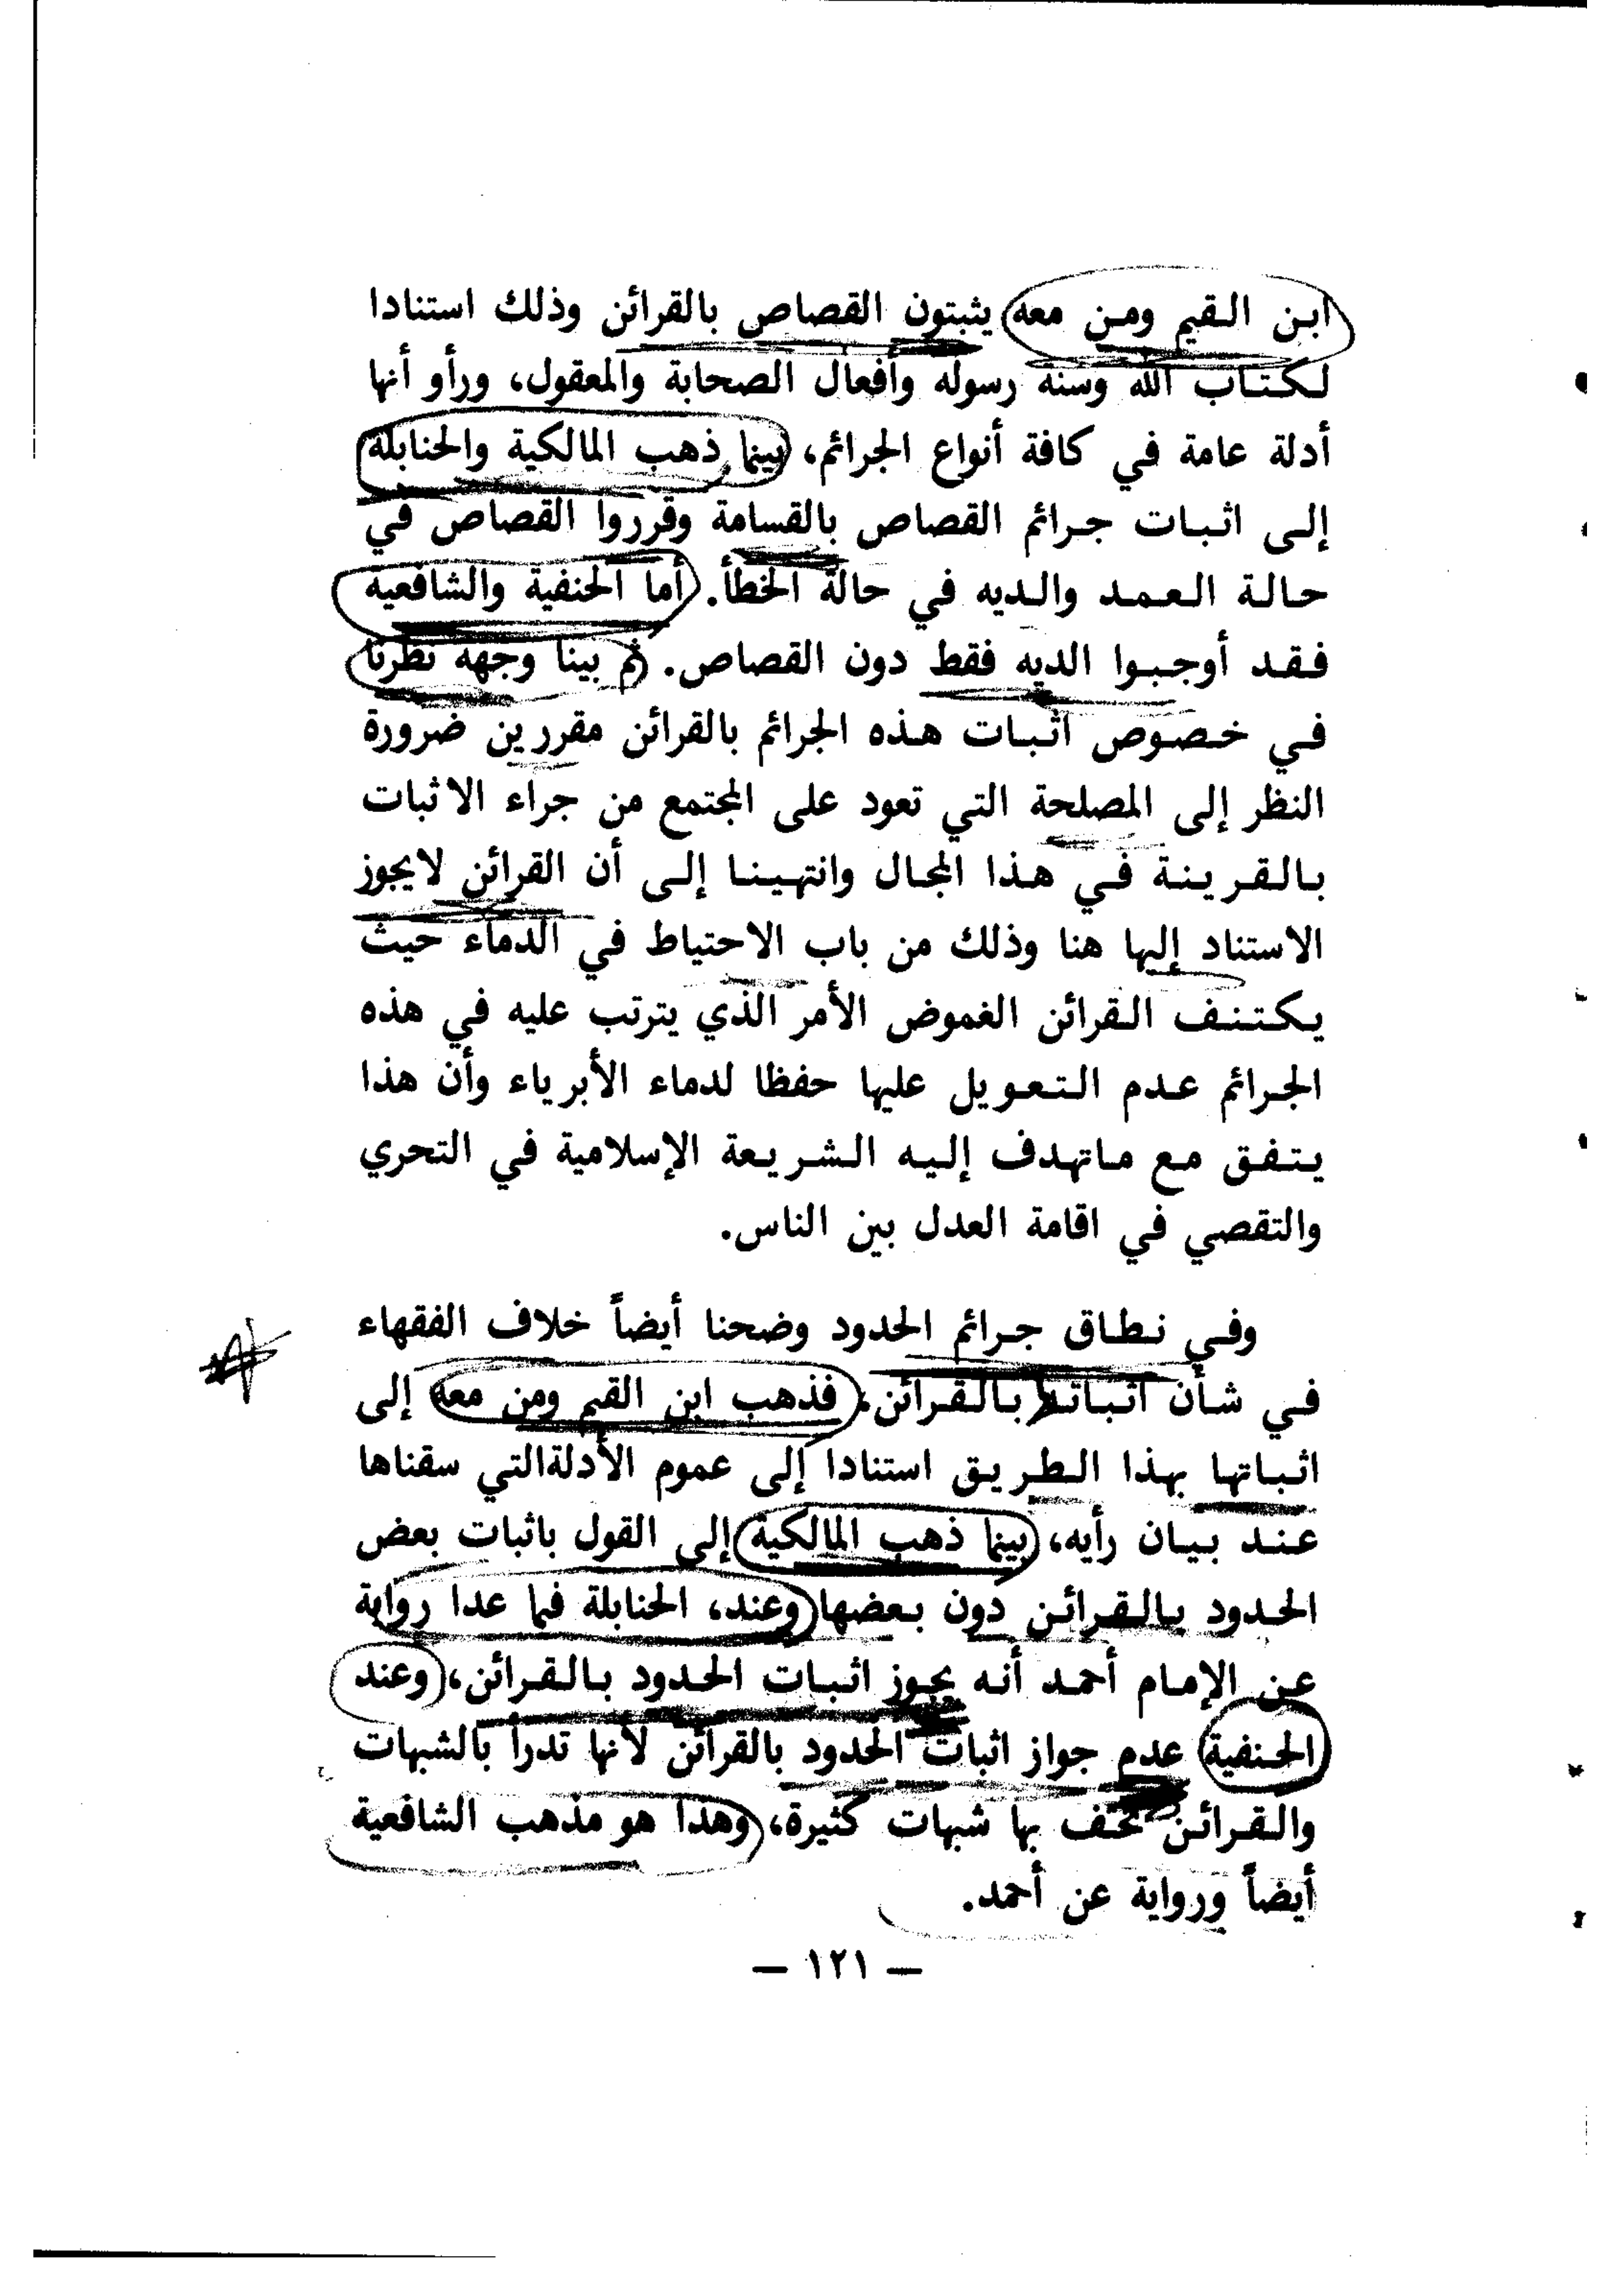 ابن القيم ومن معه يثبتون القصاص بالقرائن وذلك استنادا
لكتاب الله وسنه رسوله وأفعال الصحابة والمعقول، ورأو أنها
أدلة عامة في كافة أنواع الجرائم، بينما ذهب المالكية والحنابله
إلى اثبات جرائم القصاص بالقسامة وقرروا القصاص في
حالة العمد والديه في حالة الخطأ. أما الحنفية والشافعيه
فقد أوجبوا الديه فقط دون القصاص. ثم بينا وجهه نظرنا
في خصوص اثبات هذه الجرائم بالقرائن مقررين ضرورة
النظر إلى المصلحة التي تعود على المجتمع من جراء الاثبات
بالقرينة في هذا المجال وانتهينا إلى أن القرائن لايجوز
الاستناد إليها هنا وذلك من باب الاحتياط في الدماء حيث
يكتنف القرائن الغموض الأمر الذي يترتب عليه في هذه
الجرائم عدم التعويل عليها حفظا لدماء الأبرياء وأن هذا
يتفق مع ماتهدف إليه الشريعة الإسلامية في التحري
والتقصي في اقامة العدل بين الناس.
وفي نطاق جرائم الحدود وضحنا أيضاً خلاف الفقهاء
في شأن اثباتها بالقرائن، فذهب ابن القيم ومن معه إلى
اثباتها بهذا الطريق استنادا إلى عموم الأدلةالتي سقناها
عند بيان رأيه، بينما ذهب المالكية إلى القول باثبات بعض
الحدود بالقرائن دون بعضها وعند، الحنابلة فيما عدا رواية
عن الإمام أحمد أنه يجوز اثبات الحدود بالقرائن، وعند
الحنفية عدم جواز اثبات الحدود بالقرائن لأنها تدرأ بالشبهات
والقرائن تحتف بها شبهات كثيرة، وهذا هو مذهب الشافعية
أيضاً ورواية عن أحمد.
— ١٢١ —